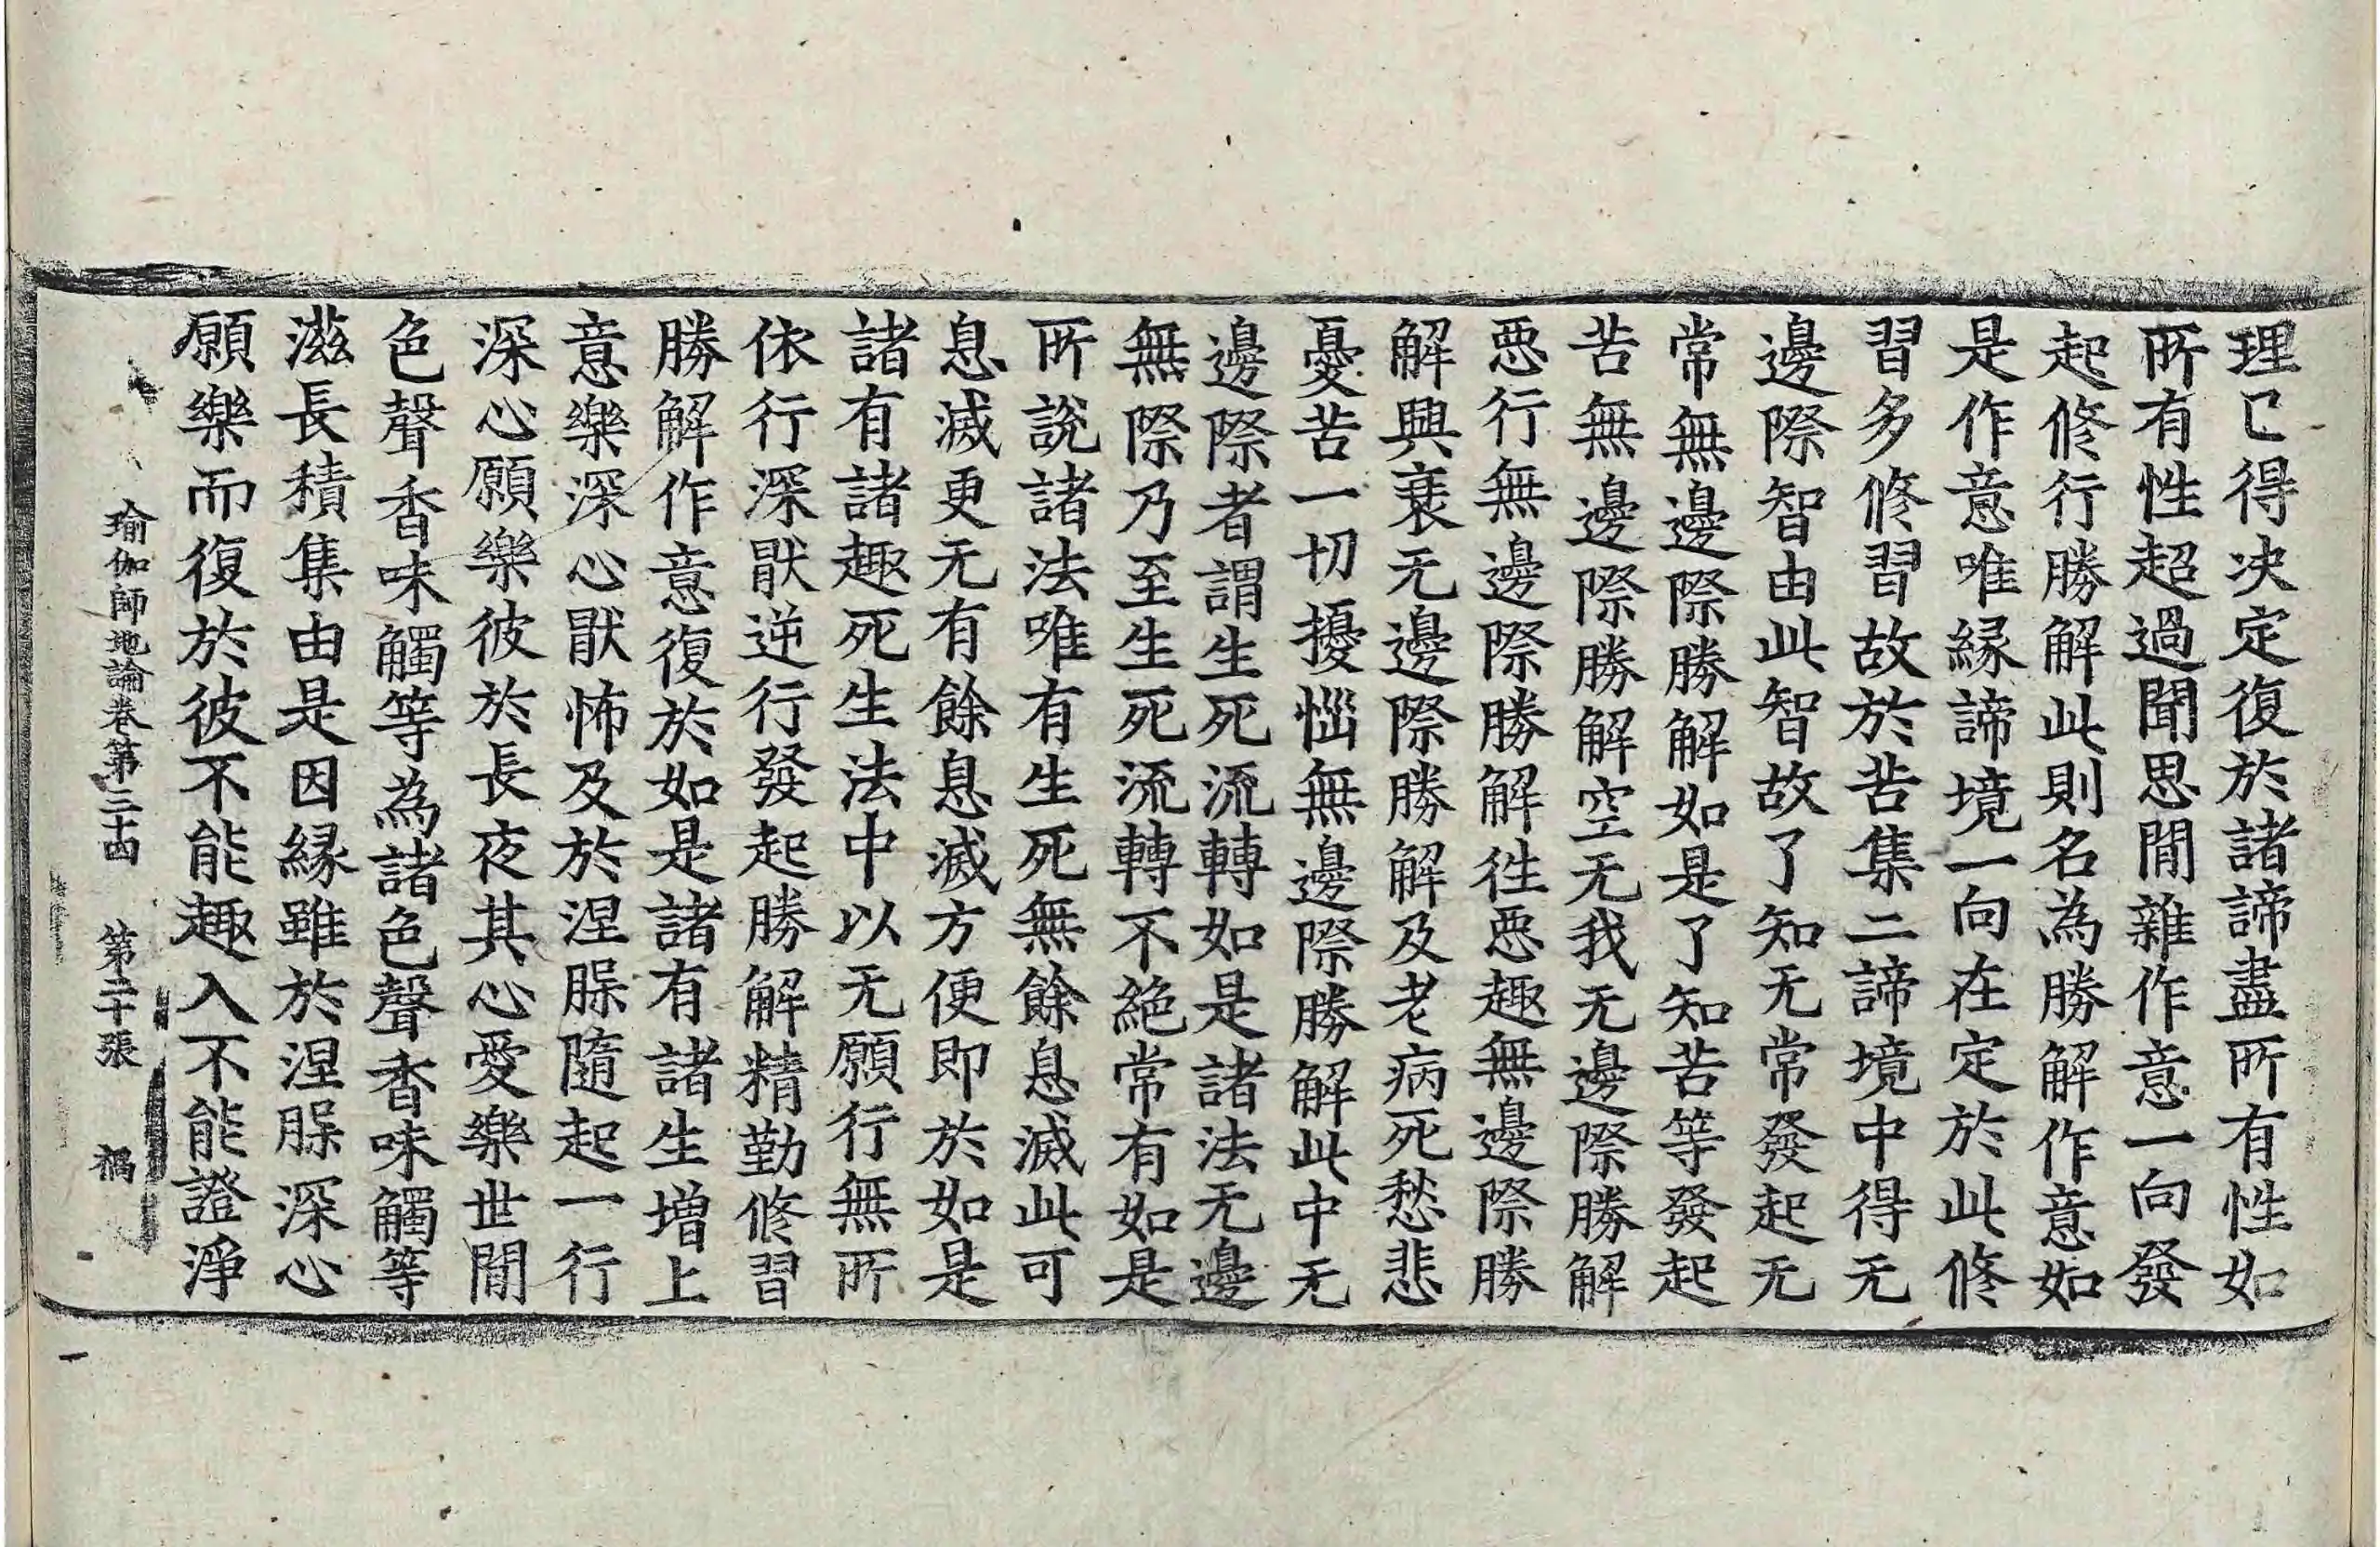 理已得决定復於諸諦盡所有性如
所有性超過聞思閒雜作意一向發
起修行勝解此則名為勝解作意如
是作意唯緣諦境一向在定於此修
習多修習故於苦集二諦境中得无
邊際智由此智故了知无常發起无
常無邊際勝解如是了知苦等發起
苦無邊際勝解空无我无邊際勝解
惡行無邊際勝解往惡趣無邊際勝
解興衰无邊際勝解及老病死愁悲
憂苦一切擾惱無邊際勝解此中无
邊際者謂生死流轉如是諸法无邊
無際乃至生死流轉不絕常有如是
所說諸法唯有生死無餘息滅此可
息滅更无有餘息滅方便即於如是
諸有諸趣死生法中以无願行無所
依行深猒逆行發起勝解精勤修習
勝解作意復於如是諸有諸生增上
意樂深心猒怖及於涅槃隨起一行
深心願樂彼於長夜其心愛樂世閒
色聲香味觸等為諸色聲香味觸等
滋長積集由是因緣雖於涅槃深心
願樂而復於彼不能趣入不能證淨
瑜伽師地論卷第三十四 第二十張